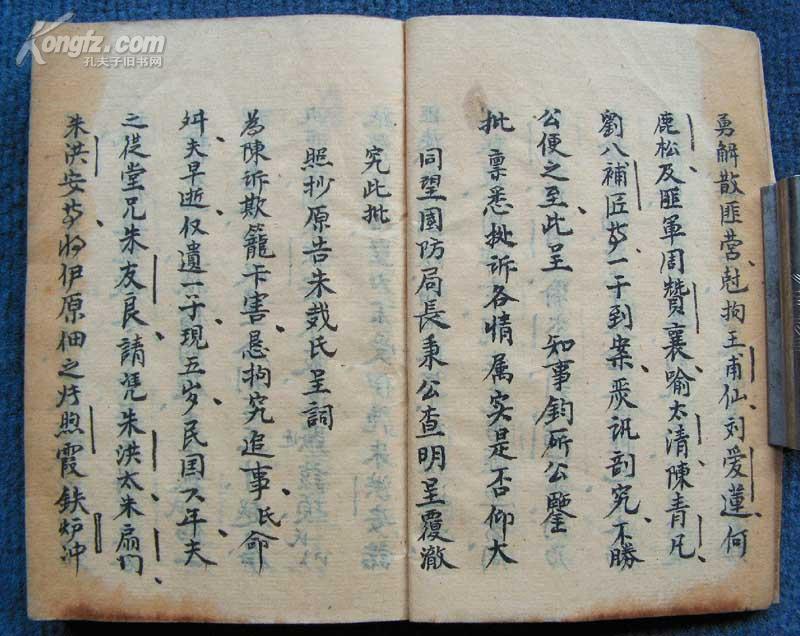 Kongfz.com
孔夫子旧书网
勇解散匪营尅拘王甫仙刘爱蓮何
鹿松及匪軍周贊襄喻太清陳青凡
劉八補匠等一干到案嚴讯剖究不勝
公便之至此呈　知事鈞所公鑒
批　禀悉批诉各情属实是否仰大
同望國防局長秉公查明呈覆澈
究此批
照抄原告朱戎氏呈詞
為陳诉欺籠卡害恳拘究追事氏命
舛夫早逝仅遺一子現五岁民国六年夫
之從堂兄朱友良請凭朱洪太朱扇门
朱洪安等将伊原佃之煦霞鉄炉冲